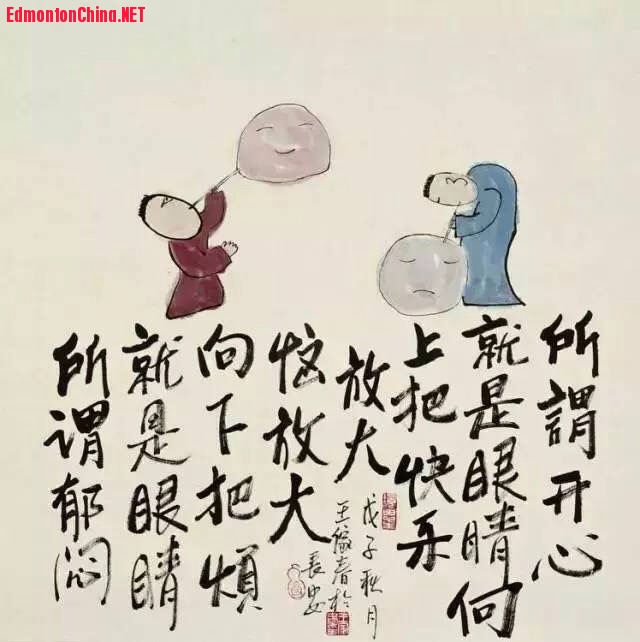 所謂开心
就是眼睛向
上把快乐
放大
所谓郁闷
就是眼睛
向下把煩
恼放大
戊子秋月
王家春於
長安
EdmontonChina.NET